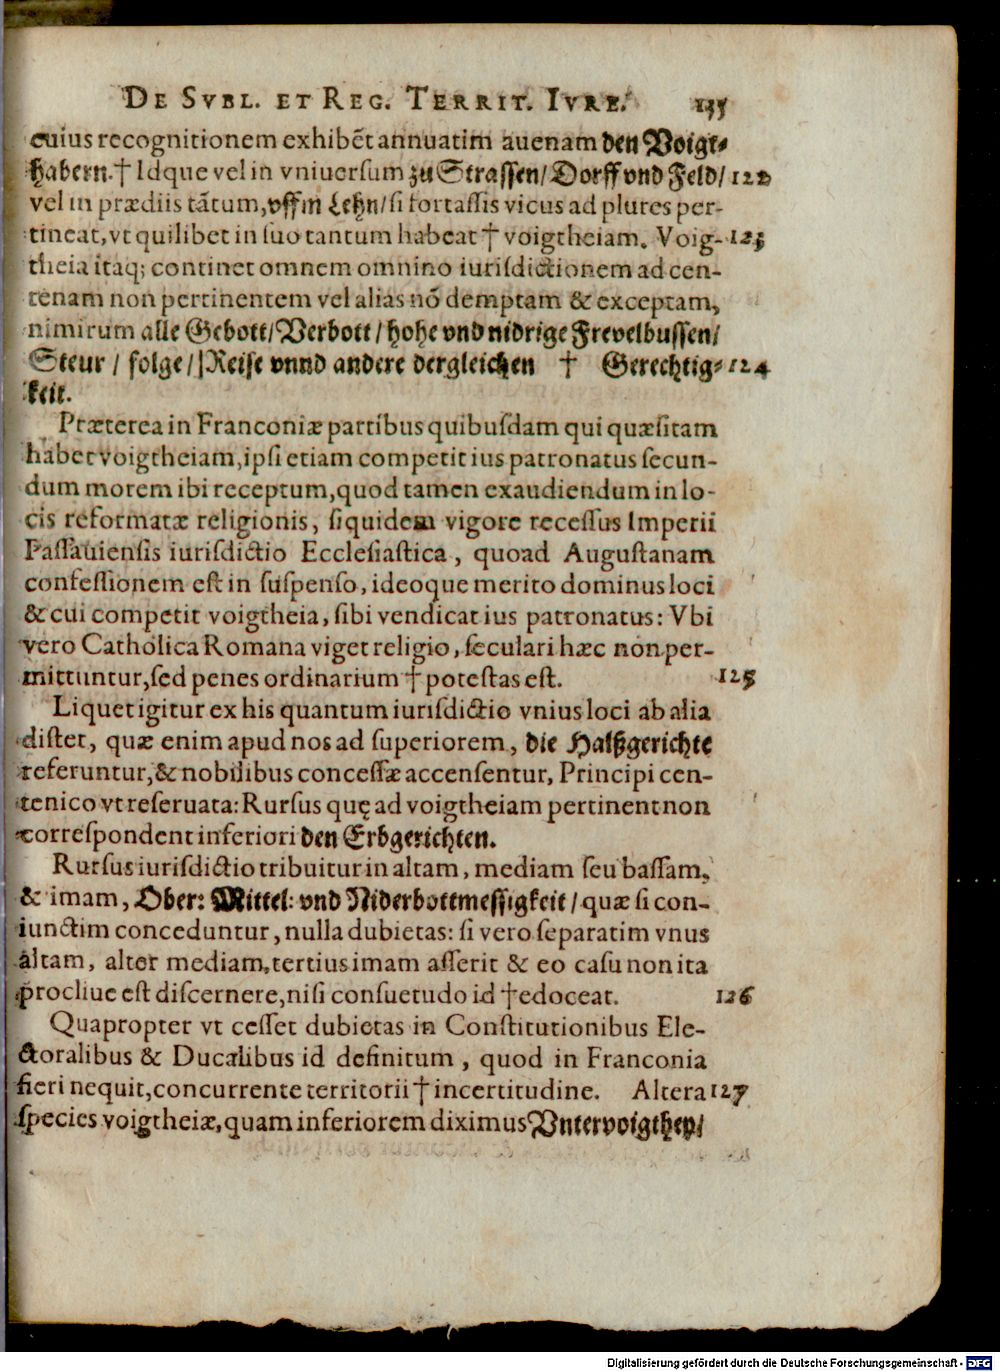 DE SVBL. ET REG. TERRIT. IVRE. 135
cuius recognitionem exhibẽt annuatim auenam den Voigt-
habern.† Idque vel in vniuersum zu Strassen/ Dorff vnd Feld/ 122
vel in prædiis tãtum, vffm Lehn/ si fortassis vicus ad plures per-
tineat, vt quilibet in suo tantum habeat † voigtheiam. Voig- 123
theia itaq; continet omnem omnino iurisdictionem ad cen-
tenam non pertinentem vel alias nõ demptam & exceptam,
nimirum alle Gebott/ Verbott/ hohe vnd nidrige Frevelbussen/
Steur / folge/ Reise vnnd andere dergleichen † Gerechtig- 124
keit.
Præterea in Franconiæ partibus quibusdam qui quæsitam
habet voigtheiam, ipsi etiam competit ius patronatus secun-
dum morem ibi receptum, quod tamen exaudiendum in lo-
cis reformatæ religionis, siquidem vigore recessus Imperii
Passauiensis iurisdictio Ecclesiastica, quoad Augustanam
confessionem est in suspenso, ideoque merito dominus loci
& cui competit voigtheia, sibi vendicat ius patronatus: Vbi
vero Catholica Romana viget religio, seculari hæc non per-
mittuntur, sed penes ordinarium † potestas est. 125
Liquet igitur ex his quantum iurisdictio vnius loci ab alia
distet, quæ enim apud nos ad superiorem, die Halßgerichte
referuntur, & nobilibus concessæ accensentur, Principi cen-
tenico vt reseruata: Rursus quę ad voigtheiam pertinent non
correspondent inferiori den Erbgerichten.
Rursus iurisdictio tribuitur in altam, mediam seu bassam,
& imam, Ober: Mittel: vnd Niderbottmessigkeit/ quæ si con-
iunctim conceduntur, nulla dubietas: si vero separatim vnus
altam, alter mediam, tertius imam asserit & eo casu non ita
procliue est discernere, nisi consuetudo id † edoceat. 126
Quapropter vt cesset dubietas in Constitutionibus Ele-
ctoralibus & Ducalibus id definitum, quod in Franconia
fieri nequit, concurrente territorii † incertitudine. Altera 127
species voigtheiæ, quam inferiorem diximus Vntervoigthey/
Digitalisierung gefördert durch die Deutsche Forschungsgemeinschaft - DFG